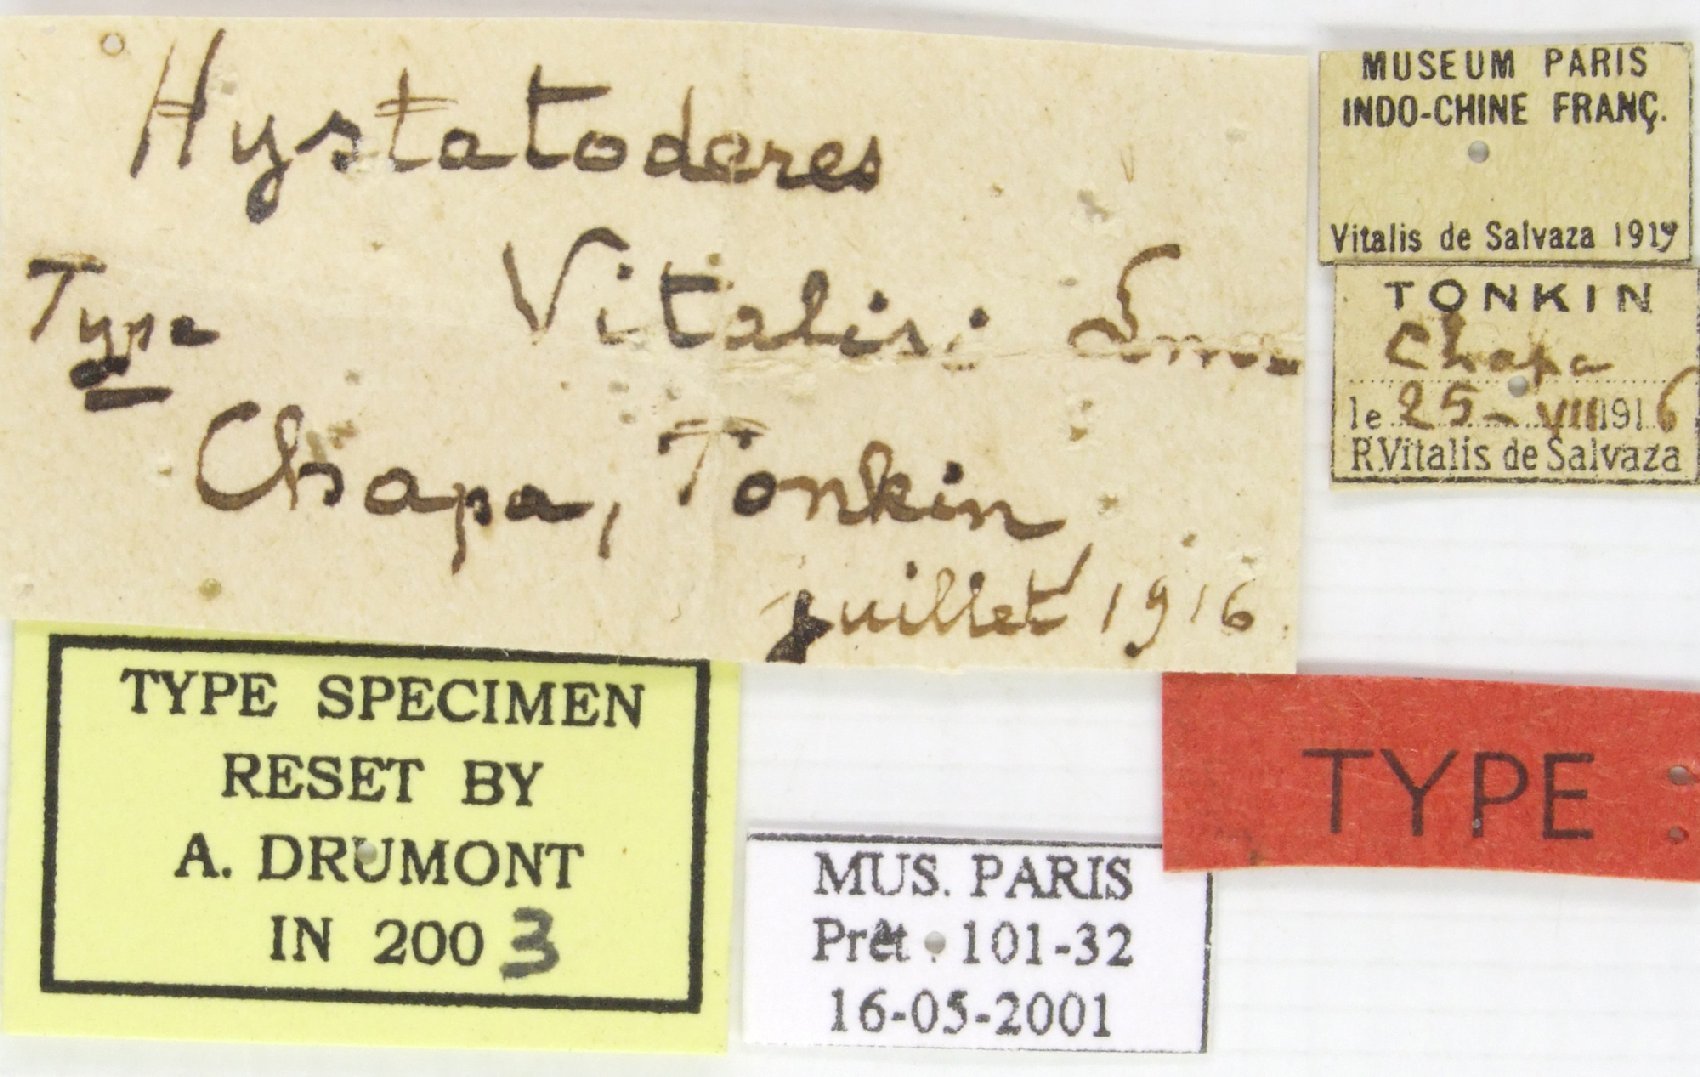 Hystatoderes
Type Vitalisi Lmr
Chapa, Tonkin,
juillet 1916.
MUSEUM PARIS
INDO-CHINE FRANÇ.
Vitalis de Salvaza 1917
TONKIN
Chapa
le 25-VII 1916
R.Vitalis de Salvaza
TYPE SPECIMEN
RESET BY
A. DRUMONT
IN 2003
MUS. PARIS
Prêt : 101-32
16-05-2001
TYPE